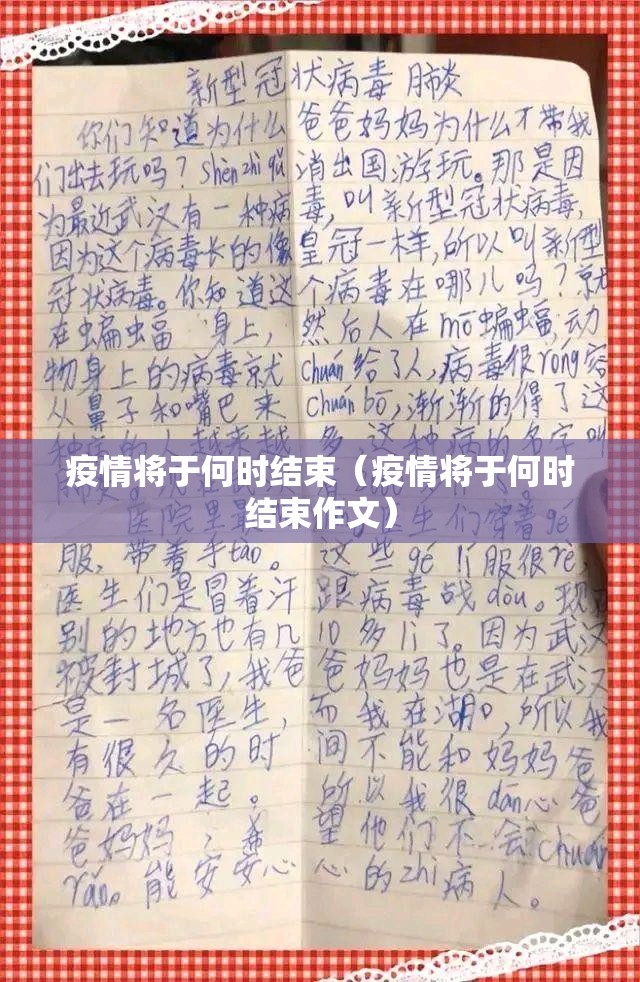 新型冠状病毒肺炎
你们知道为什么爸爸妈妈为什么才带我
们出去玩吗？shèn zhì qǔ 消出国游玩。那是因
为最近武汉有一种病毒，叫新型冠状病毒，
因为这个病毒长的像皇冠一样，所以叫新型
冠状病毒。你知道这个病毒在哪儿吗？就
在蝙蝠身上，然后人在mō蝙蝠，动
物身上的病毒就chuán给了人，病毒很róng容
从鼻子和嘴巴来chuán bō，渐渐的得了这
多 这种病的名字叫
疫情将于何时结束（疫情将于何时
结束作文）
医院里 生们穿着gé
服，带着手tào。这些gé lí服很rè，
医生们是冒着汗跟病毒战dòu。现在
别的地方也有几10多lì了。因为武汉
被封城了，我爸爸妈妈也是在武汉
是一名医生，而我在湖口，所以我
有很久的时间不能和妈妈爸
爸在一起。所以我很dān心爸
爸妈妈，希望他们不会chuán
rǎn。能安安心心的zhì病人。